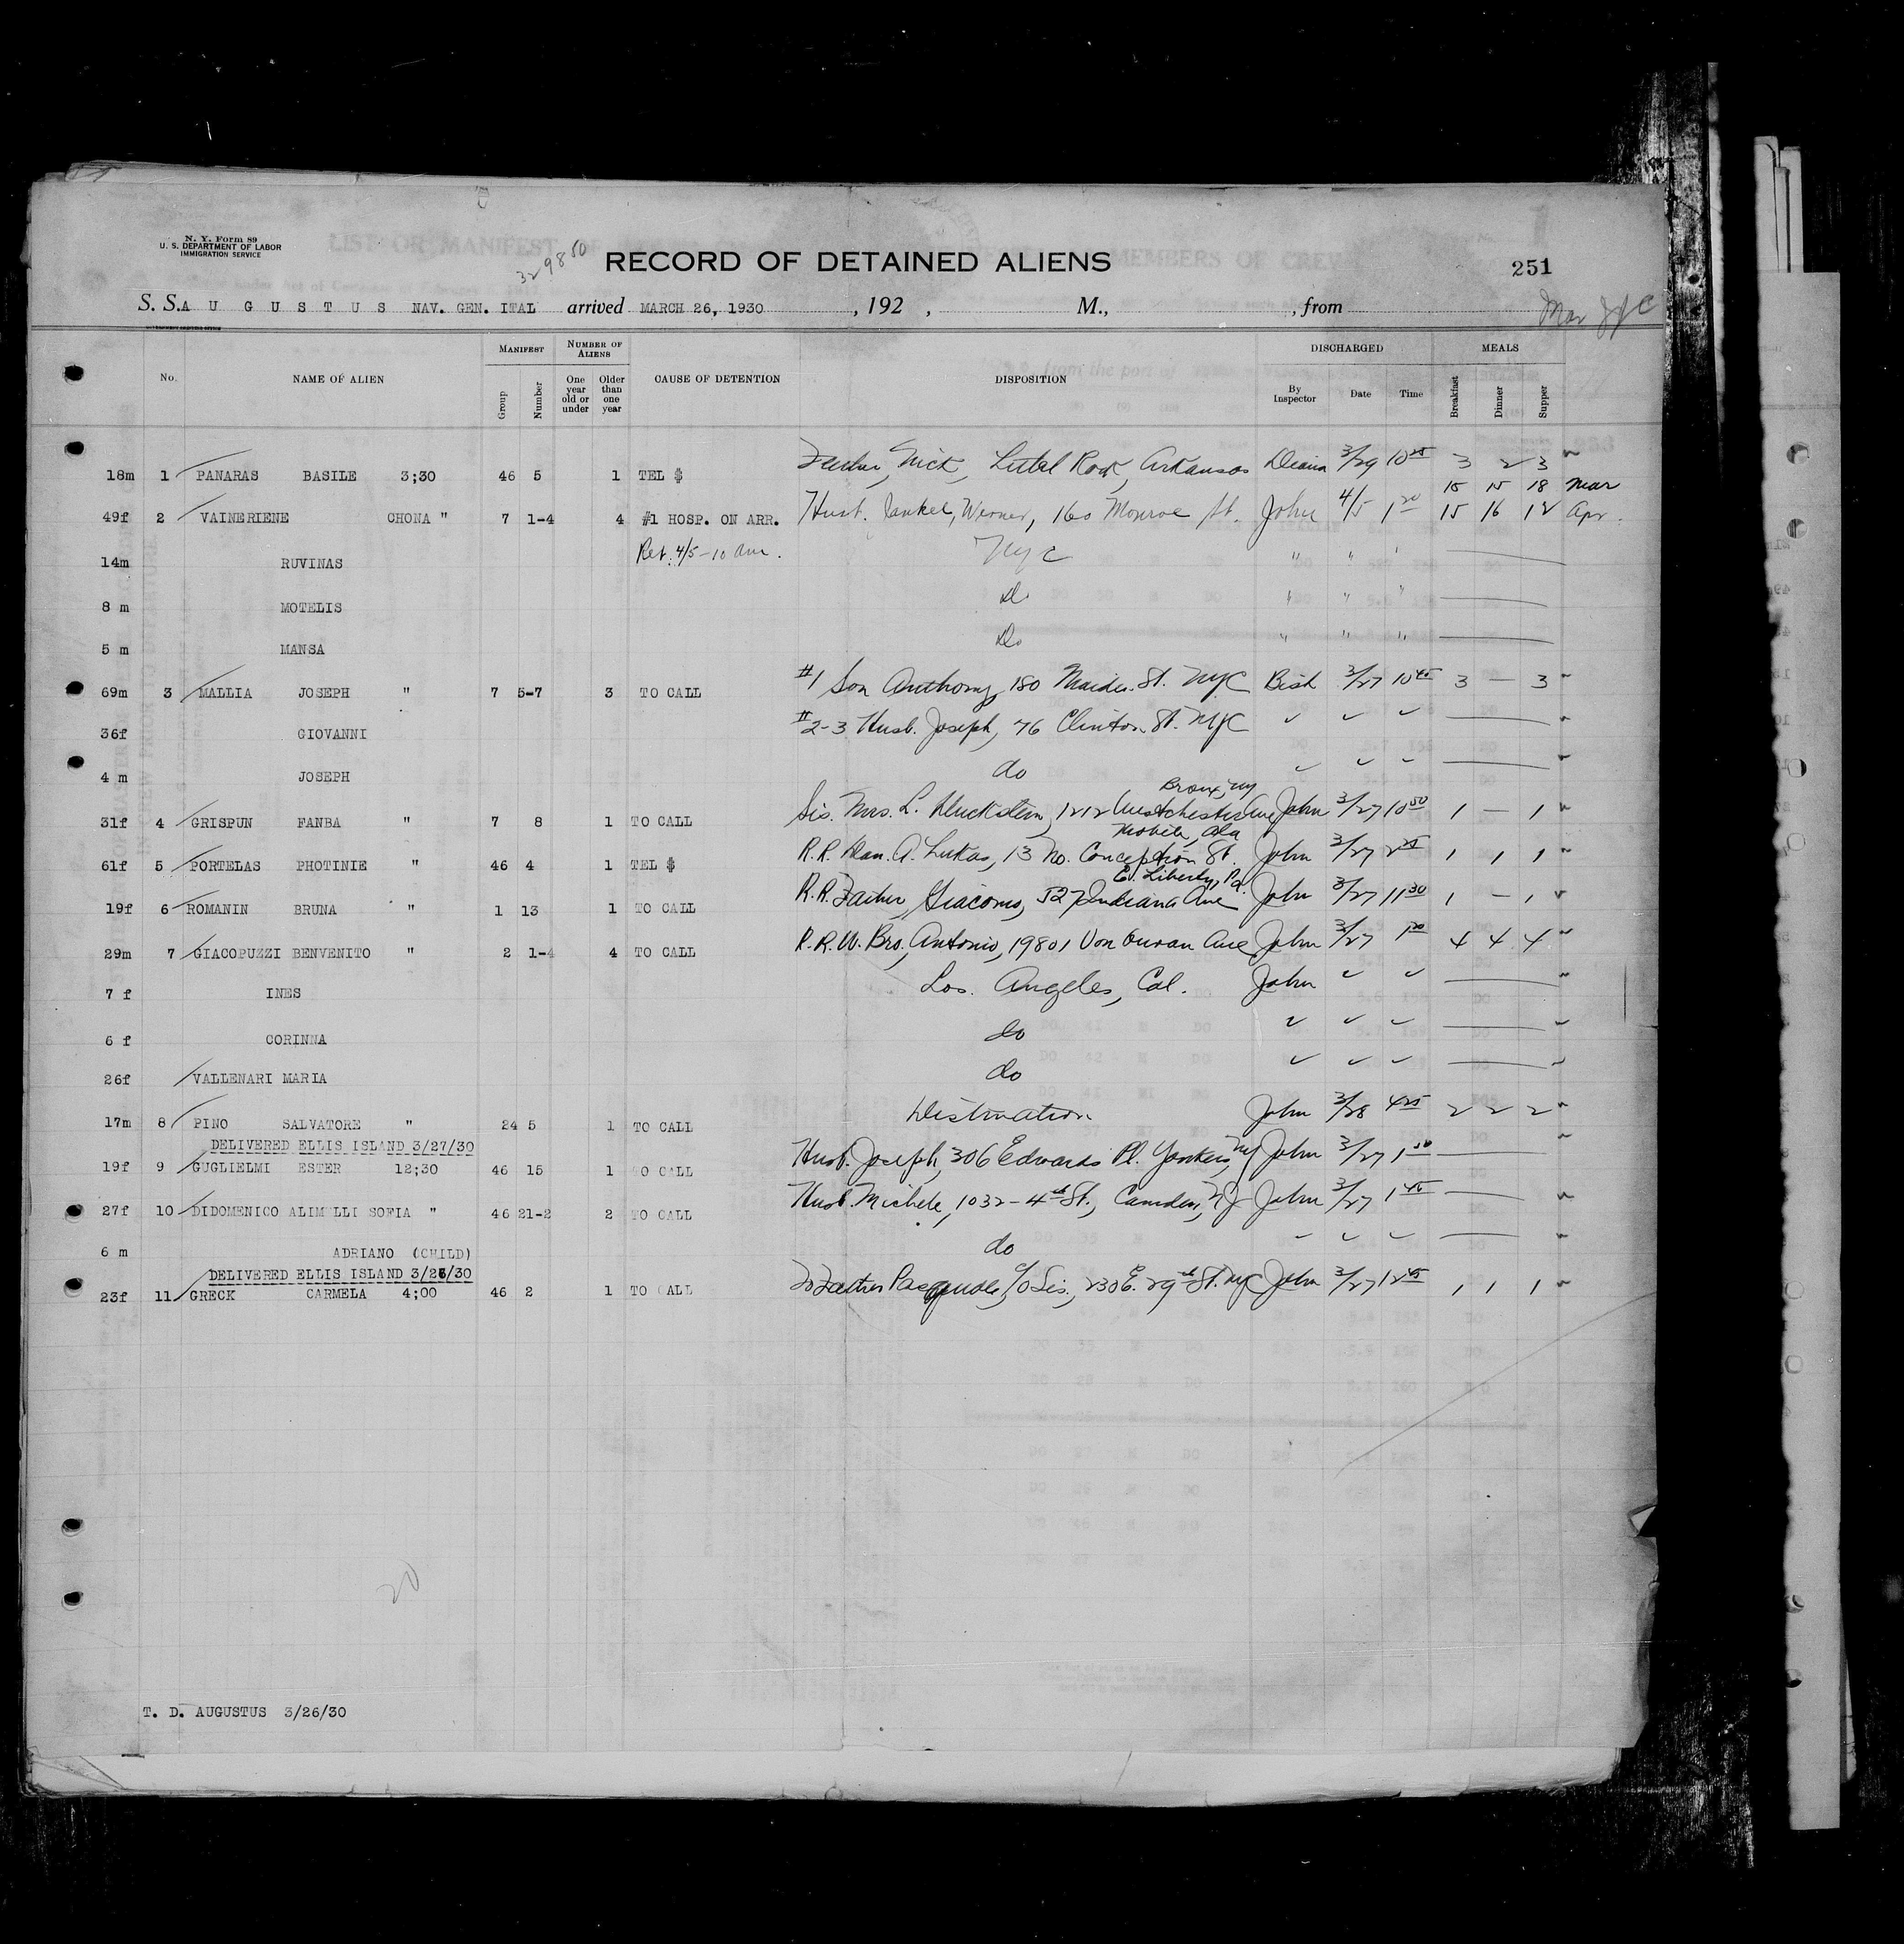 N. Y. Form 89
U. S. DEPARTMENT OF LABOR
IMMIGRATION SERVICE
RECORD OF DETAINED ALIENS
251
S. S. A U G U S T U S NAV. GEN. ITAL arrived MARCH 26, 1930 , 192 , M., , from
No. NAME OF ALIEN MANIFEST NUMBER OF ALIENS CAUSE OF DETENTION DISPOSITION DISCHARGED MEALS
Group Number One year old or under Older than one year By Inspector Date Time Breakfast Dinner Supper
18m 1 PANARAS BASILE 3;30 46 5 1 TEL $ Father, Nick, Littel Rock, Arkansas 3/29 10 25 3 2 3 "
15 15 18 Mar
49f 2 VAINERIENE CHONA " 7 1-4 4 #1 HOSP. ON ARR. Husb. Jankel, 160 Monroe St. John 4/5 1 20 15 16 12 Apr.
Ret. 4/5-10 am.
14m RUVINAS NYC " " "
8 m MOTELIS Do " " "
5 m MANSA Do " " "
69m 3 MALLIA JOSEPH " 7 5-7 3 TO CALL #1 Son Anthony, 180 Maiden St. NYC 3/27 10 45 3 — 3 "
36f GIOVANNI #2-3 Husb. Joseph, 76 Clinton St. NYC " " " "
4 m JOSEPH do " " " "
Bronx, NY
31f 4 GRISPUN FANBA " 7 8 1 TO CALL Sis. Mrs. L. 1212 Westchester Ave John 3/27 10 50 1 — 1 "
Mobile, Ala
61f 5 PORTELAS PHOTINIE " 46 4 1 TEL $ R.R. A. Lukas, 13 No. Conception St. John 3/27 2 25 1 1 1 "
E. Liberty, Pa.
19f 6 ROMANIN BRUNA " 1 13 1 TO CALL R.R. Father, Giacomo, 527 Indiana Ave John 3/27 11 30 1 — 1 "
29m 7 GIACOPUZZI BENVENITO " 2 1-4 4 TO CALL R.R.W. Bro, Antonio, 19801 Ave John 3/27 1 20 4 4 4 "
7 f INES Los Angeles, Cal. John " " "
6 f CORINNA do " " " "
26f VALLENARI MARIA do " " " "
17m 8 PINO SALVATORE " 24 5 1 TO CALL Destination John 3/28 4 25 2 2 2 "
DELIVERED ELLIS ISLAND 3/27/30
19f 9 GUGLIELMI ESTER 12;30 46 15 1 TO CALL Husb. Joseph, 306 Edwards Pl. Yonkers, NY John 3/27 1 50 "
27f 10 DIDOMENICO ALIMELLI SOFIA " 46 21-2 2 TO CALL Husb. Michele, 1032-4th St., Camden, NJ John 3/27 1 45 "
6 m ADRIANO (CHILD) do " " " "
DELIVERED ELLIS ISLAND 3/26/30
23f 11 GRECK CARMELA 4;00 46 2 1 TO CALL To Father Pasquale, c/o Sis., 230 E. 29th St. NYC John 3/27 12 45 1 1 1 "
20
T. D. AUGUSTUS 3/26/30